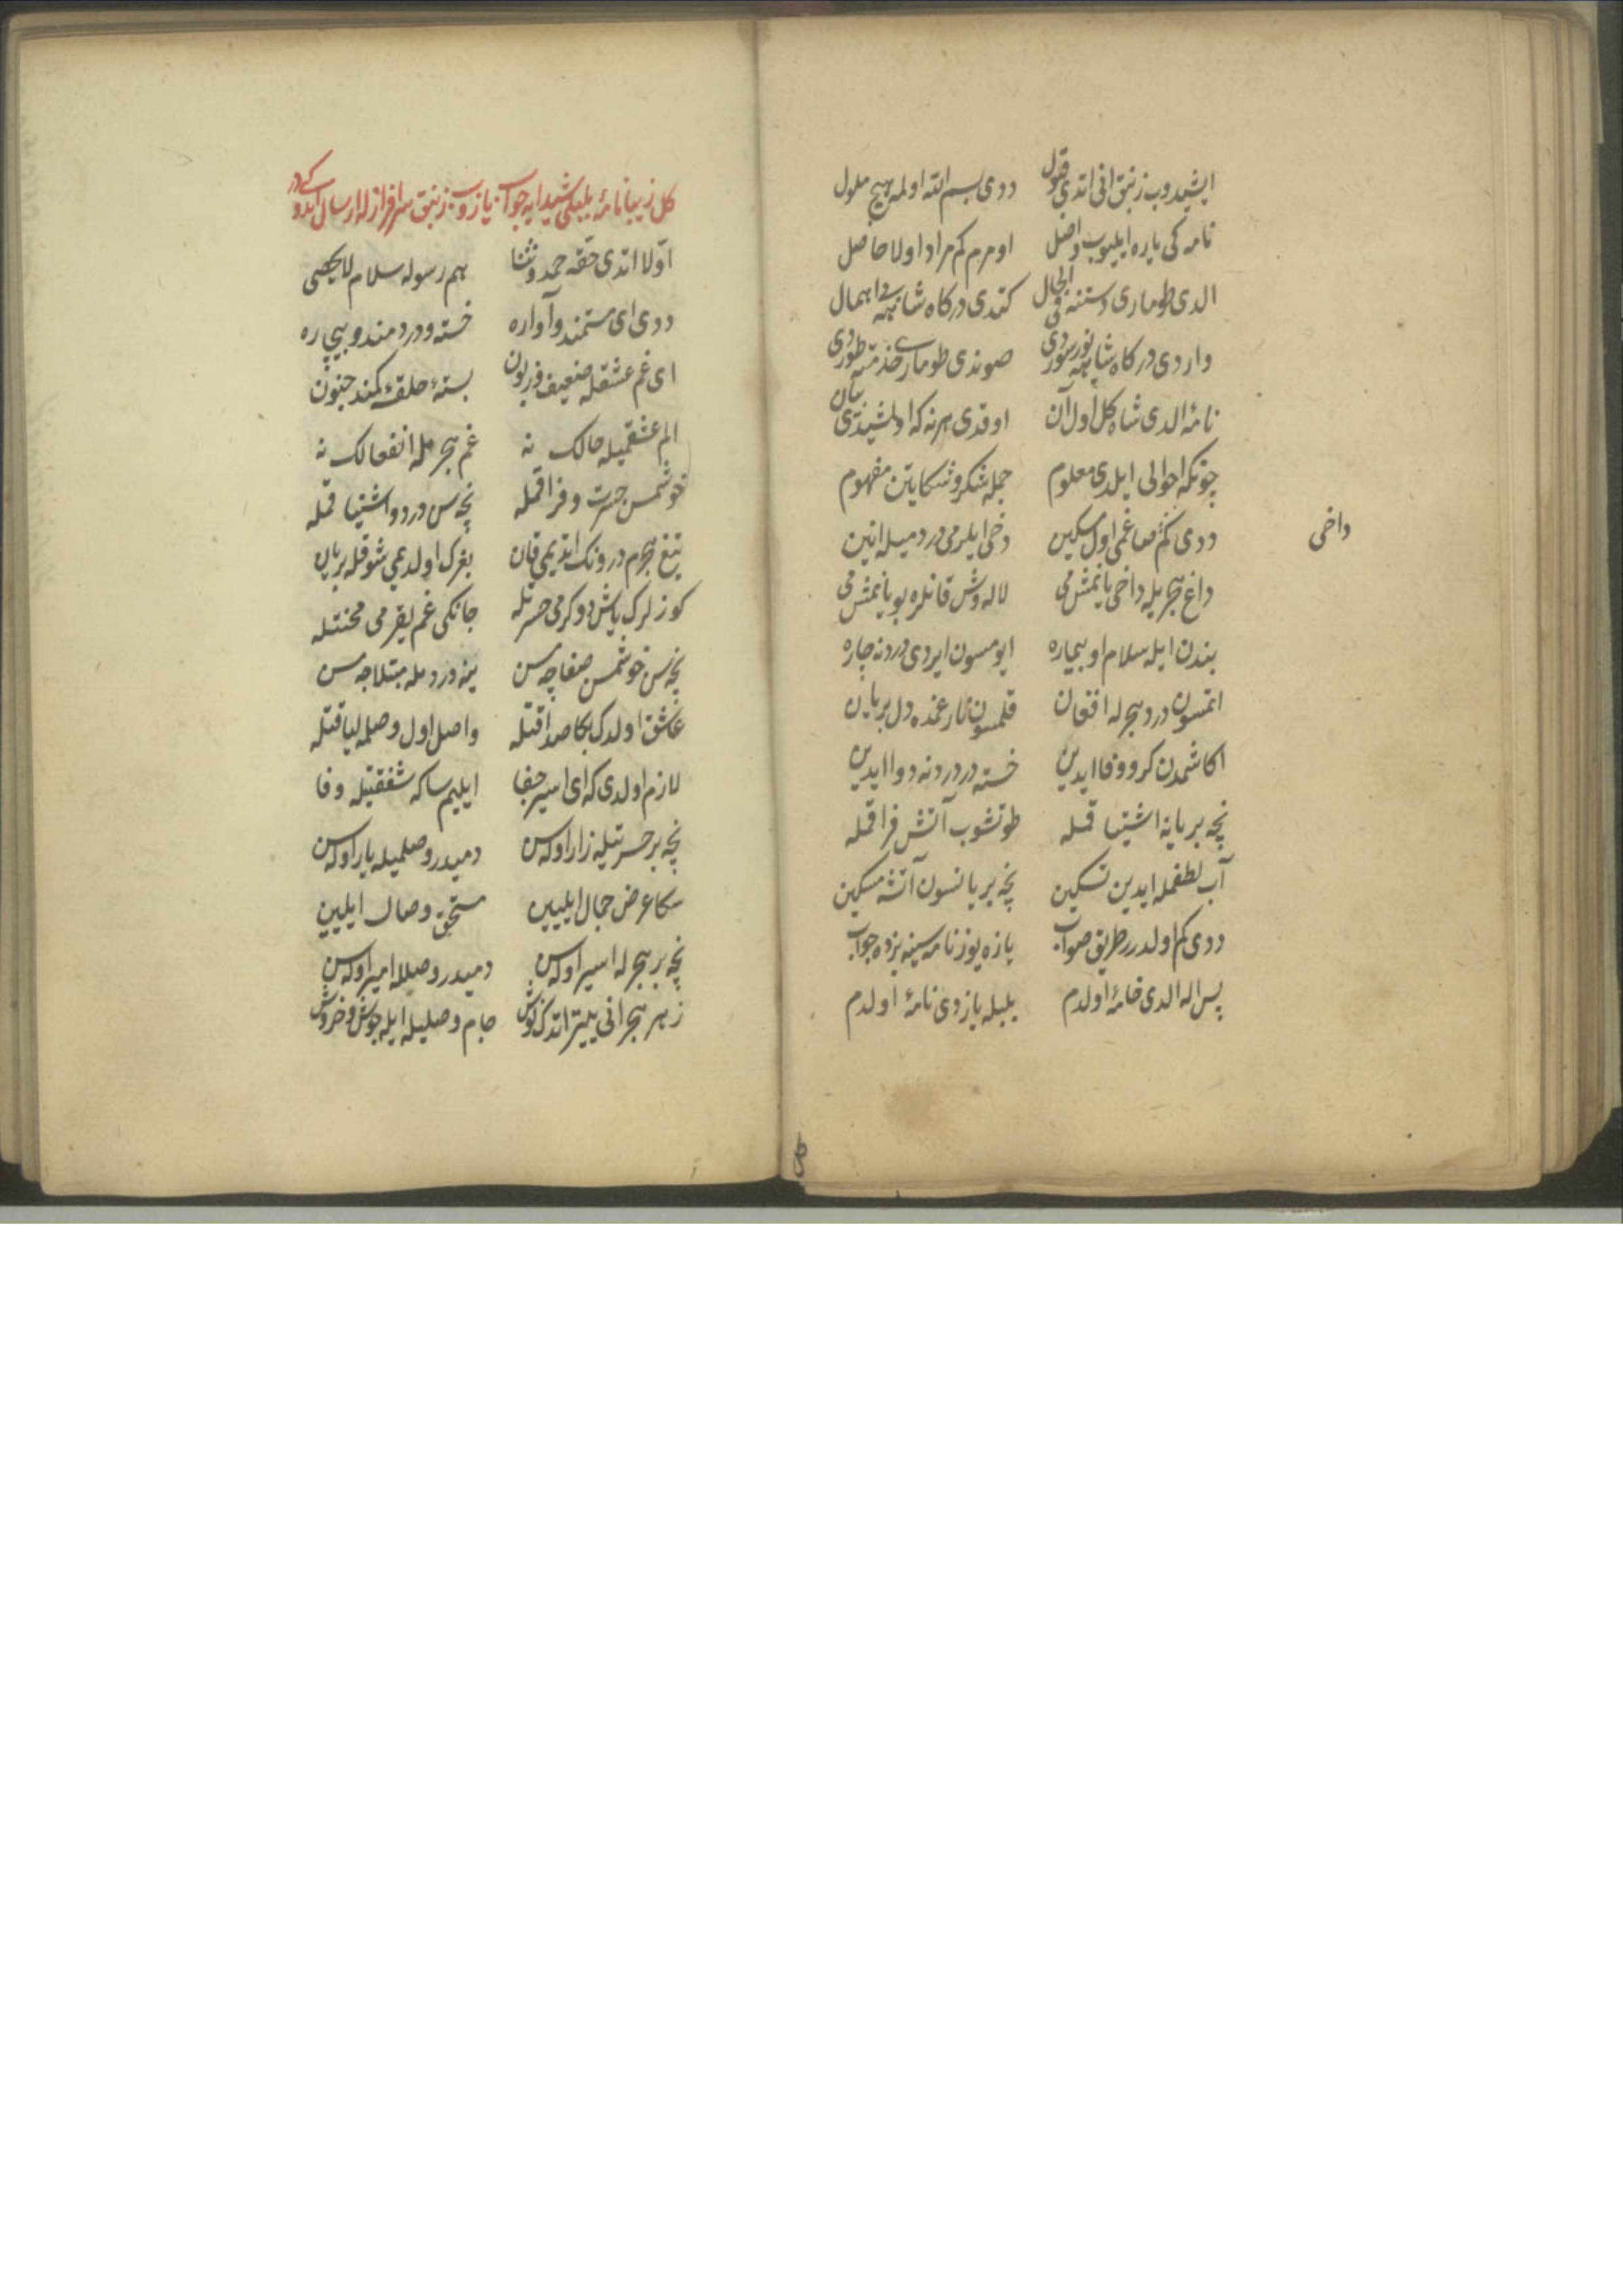 ایشیدوب زنبق انی اتدی قبول ددی بسم الله اولمه هیچ ملول
نامه کی یاره ایلیوب واصل اومرم کم مراد اولا حاصل
الدی طوماری دستنه فی الحال کتدی درکاه شاهه بی اهمال
واردی درکاه شاهه یوز سوردی صوندی طوماری خذمته طوردی
نامهٔ الدی شاه کل اول آن اوقدی هرنه که اولمشیدی بیان
چونکه احوالی ایلدی معلوم جمله شکر و شکایتن مفهوم
ددی کم صاغمی اول مسکین دخی ایلرمی دردمیله انین
داخی
داغ هجریله داخی یانمشمی لاله وش قانلره بویانمشمی
بندن ایله سلام او بیماره ایومسون ایردی دردنه چاره
اتمسون درد هجرله افغان قلمسون نار غمده دل بریان
اکا شمدن کرو وفا ایدین خسته در دردنه دوا ایدین
نچه بر یانه اشتیاقمله طوتشوب آتش فراقمله
آب لطفمله ایدین تسکین نچه بر یانسون آتشه مسکین
ددی کم اولدر طریق صواب یازه یوز نامه سینه بزده جواب
پس اله الدی خامهٔ اولدم بلبله یازدی نامهٔ اولدم
کل زیبا نامهٔ بلبل شیدایه جواب یازوب زنبق سرافرازله ارسال ایتدوکیدر
اولا اتدی حقه حمد و ثنا هم رسوله سلام لا یحصی
ددی ای مستمند و آواره خسته و دردمند و بیچاره
ای غم عشقله ضعیف و زبون بستهٔ حلقهٔ کمند جنون
الم عشقمیله حالک نه غم هجرمله انفعالک نه
خوشمسن حسرت و فراقمله نچه سن درد و اشتیاقمله
تیغ هجرم درونک اتدیمی قان بغرک اولدیمی شوقله بریان
کوزلرک یاش دوکرمی حسرتله جانکی غم یقرمی محنتله
نچه سن خوشمسن صفاچه سن ینه دردمله مبتلاجه سن
عاشق اولدک بکا صداقتله واصل اول وصلمه لیاقتله
لازم اولدی که ای اسیر جفا ایلیم ساکه شفقتیله وفا
نچه بر حسرتیله زار اوله سن دمیدر وصلمیله یار اوله سن
سکا عرض جمال ایلیین مستحق وصال ایلیین
نچه بر هجرله اسیر اوله سن دمیدر وصلله امیر اوله سن
زهر هجرانی یتر اتدک نوش جام وصلیله ایله جوش و خروش